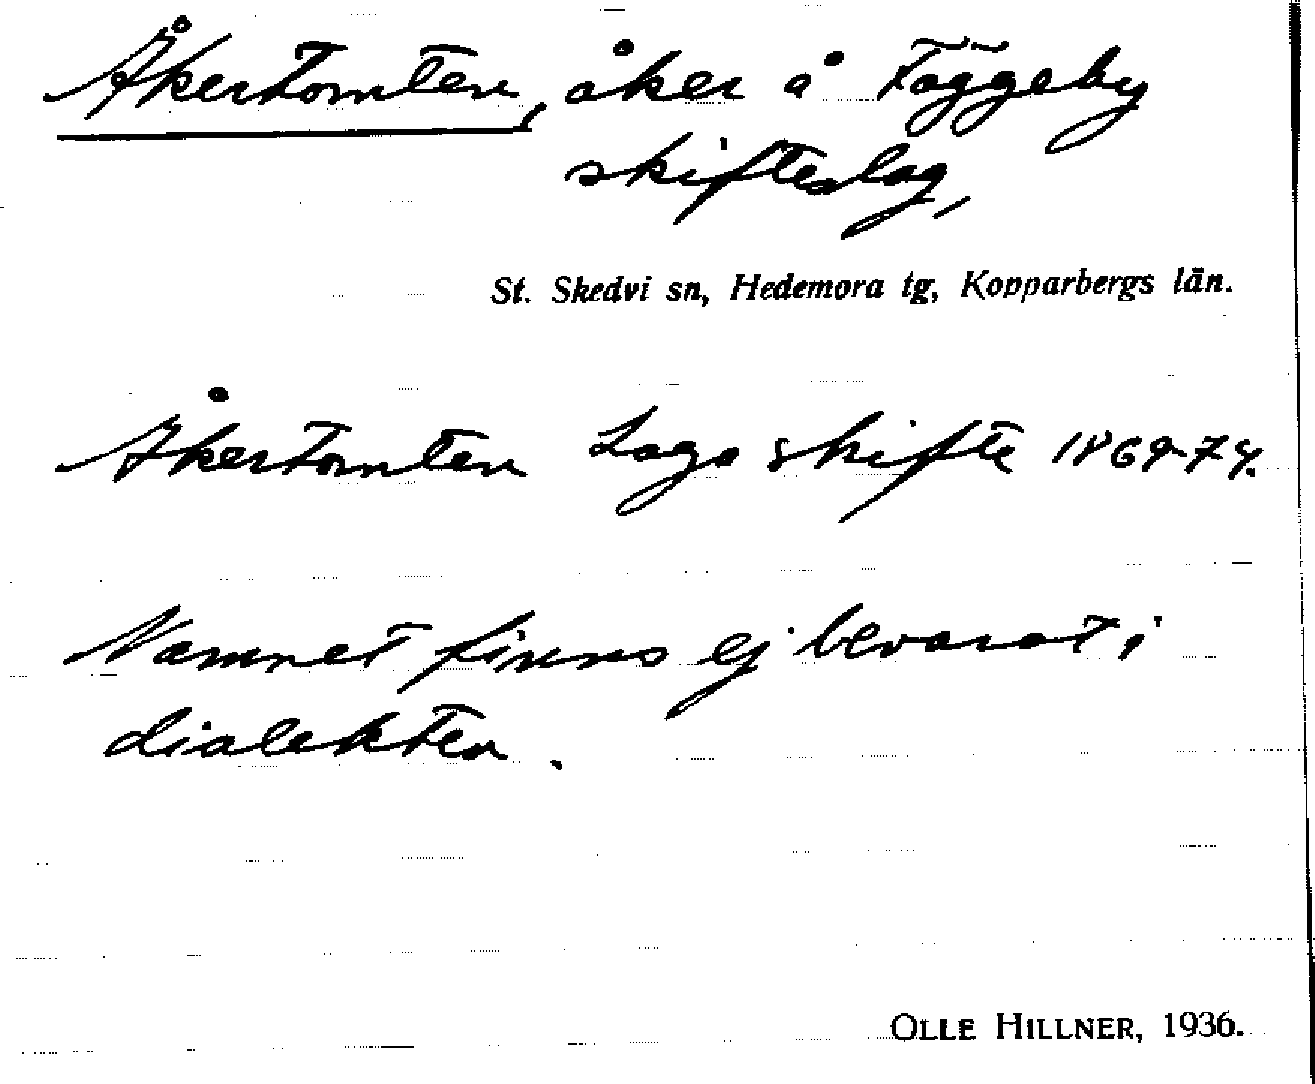 Åkertomten, åker å Fäggeby
skifteslag,
St. Skedvi sn, Hedemora tg, Kopparbergs län.
Åkertomten Laga skifte 1869-74.
Namnet finns ej bevarat i
dialekten.
OLLE HILLNER, 1936.